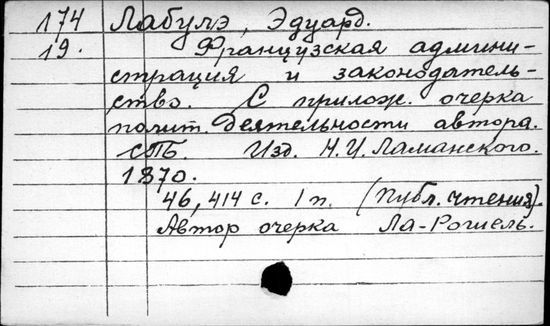 174 Лабулэ, Эдуард.
19. Французская админи-
страция и законодатель-
ство. С прилож. очерка
полит. деятельности автора.
СПБ. Изд. Н.И. Ламанского.
1870.
46, 414 с. 1 п. (Публ. чтения).
Автор очерка Ла-Рошель.